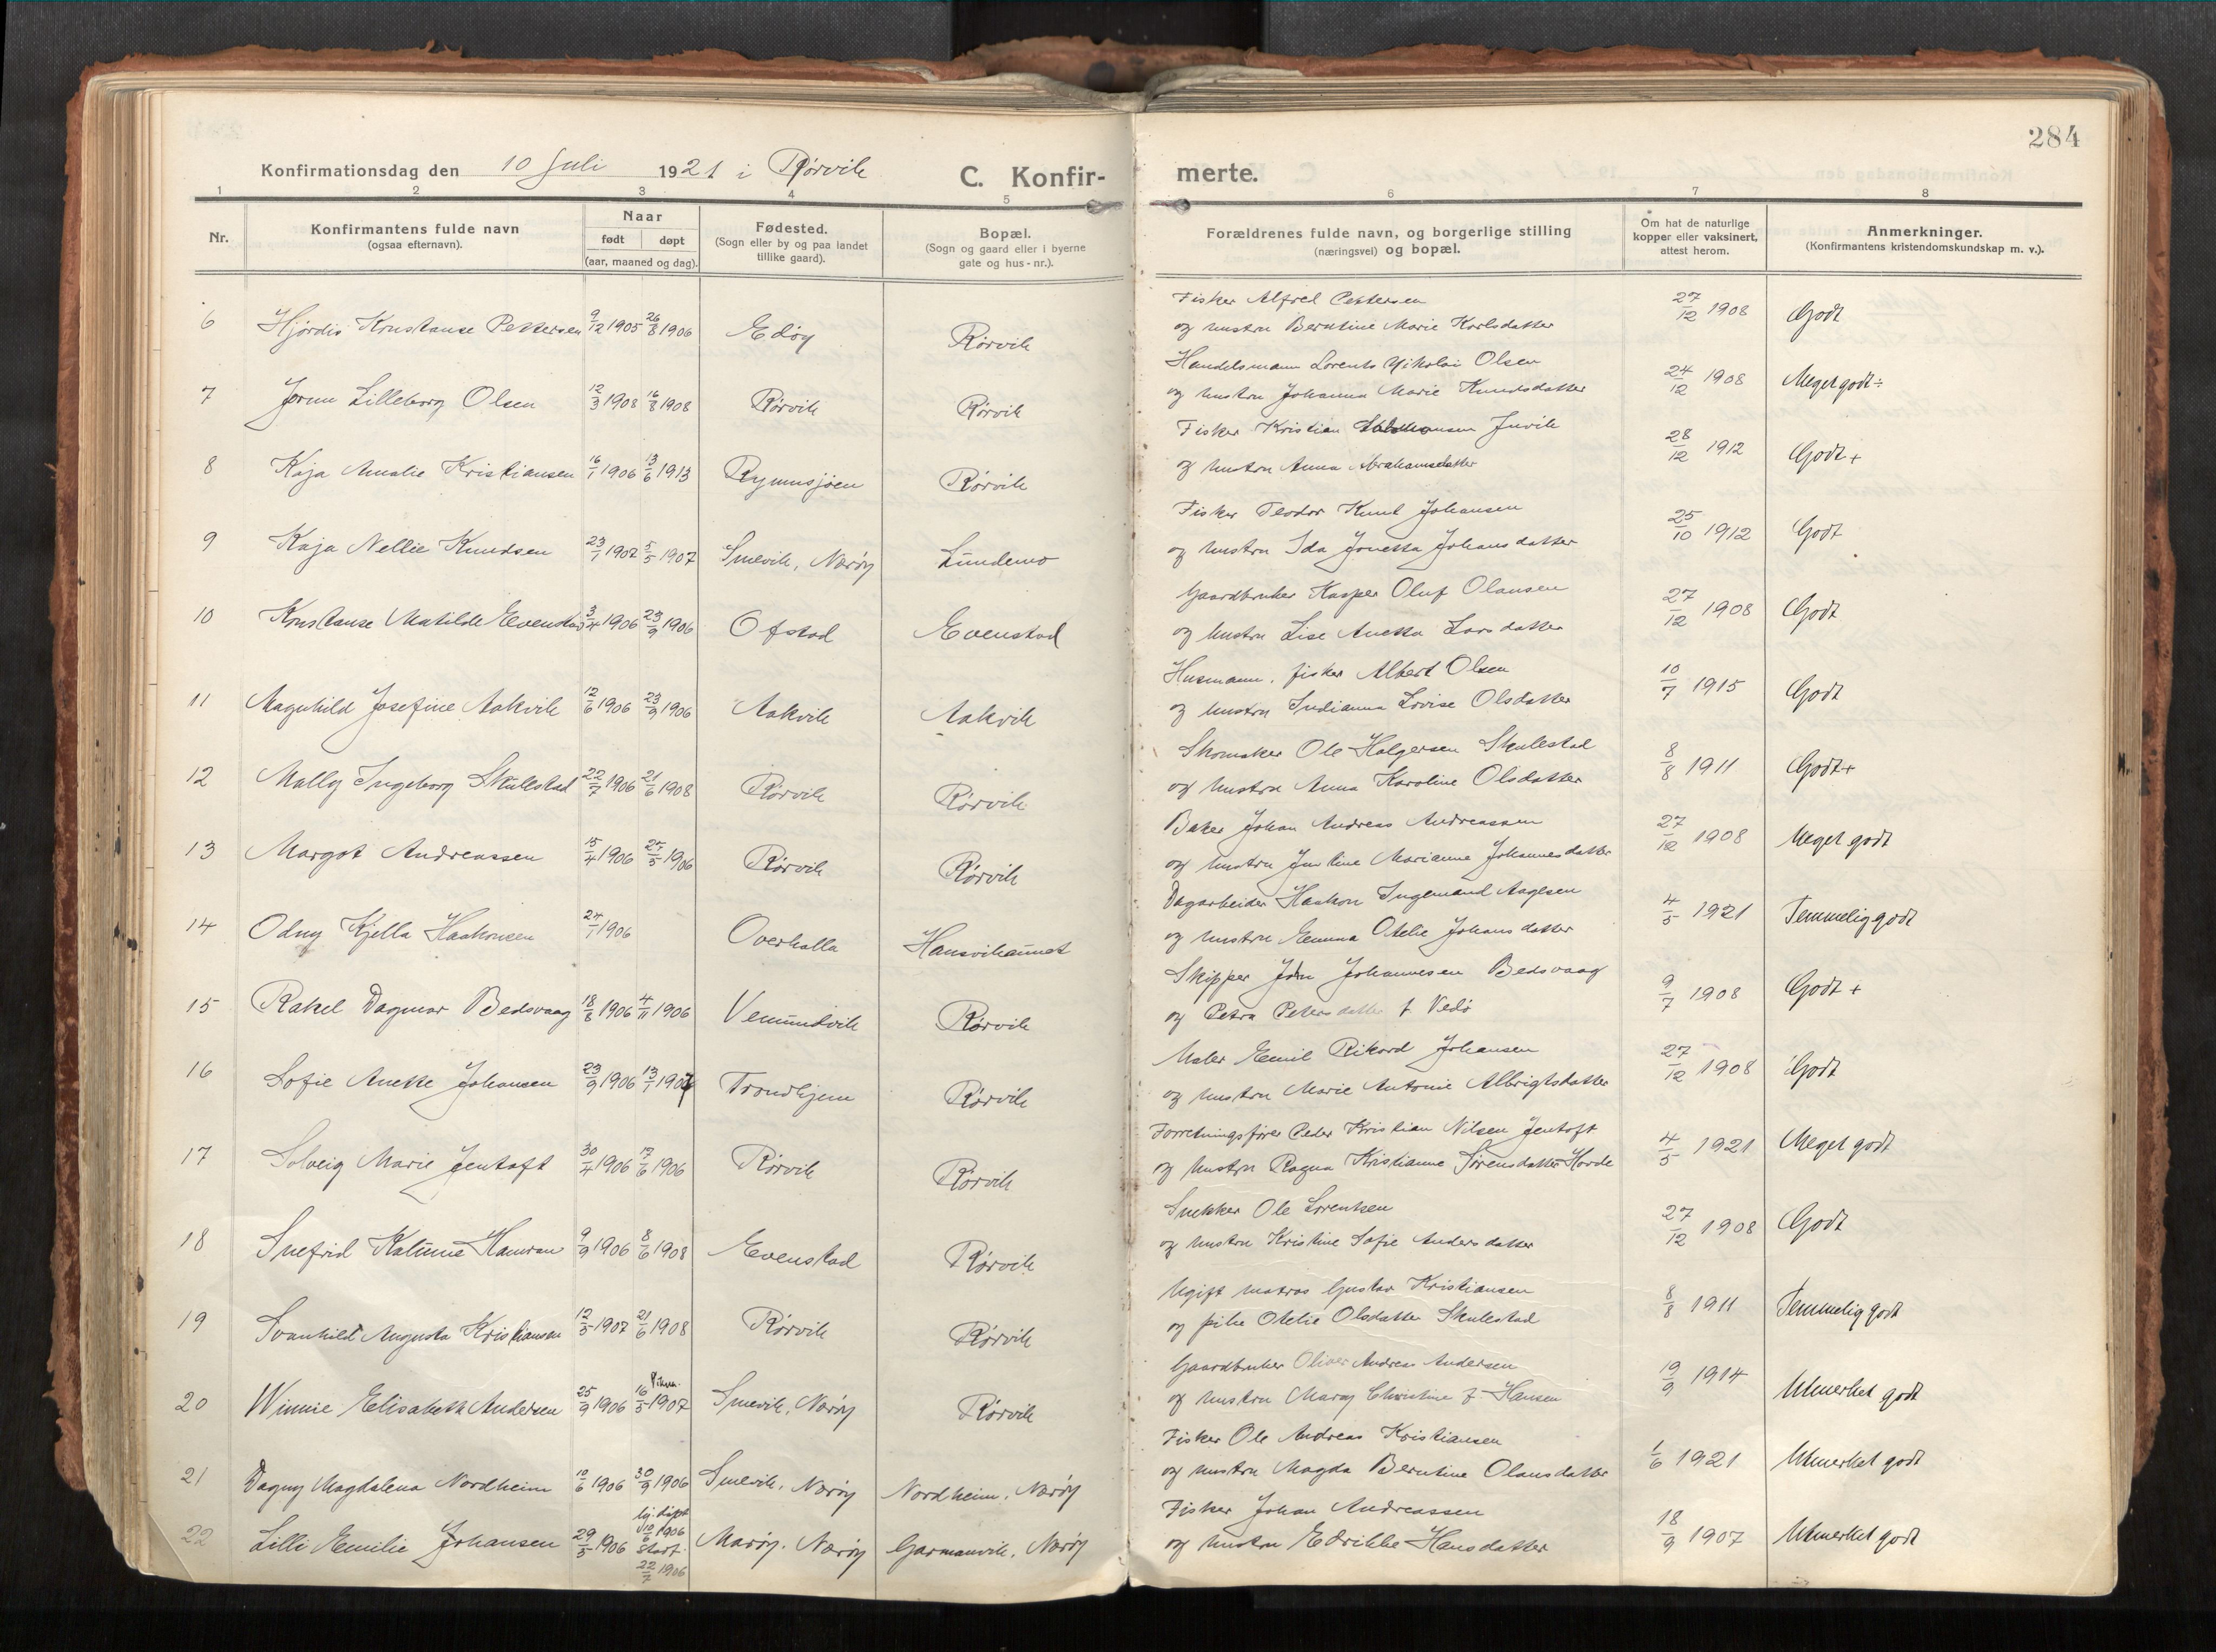 284
Konfirmationsdag den 10 Juli 1921 i Rørvik C. Konfir- merte.
1 2 3 4 5 6 7 8
Nr.
Konfirmantens fulde navn
(ogsaa efternavn).
Naar
født døpt
(aar, maaned og dag).
Fødested.
(Sogn eller by og paa landet
tillike gaard).
Bopæl.
(Sogn og gaard eller i byerne
gate og hus-nr.).
Forældrenes fulde navn, og borgerlige stilling
(næringsvei) og bopæl.
Om hat de naturlige
kopper eller vaksinert,
attest herom.
Anmerkninger.
(Konfirmantens kristendomskundskap m. v.).
Fisker Alfred Pettersen
6 Hjørdis Konstanse Pettersen 9/12 1905 26/8 1906 Edøy Rørvik og hustru Berntine Marie Karlsdatter 27/12 1908 Godt
Handelsmann Lorents Nikolai Olsen
7 Jorun Lilleborg Olsen 12/3 1908 16/8 1908 Rørvik Rørvik og hustru Johanna Marie Knudsdatter 24/12 1908 Meget godt ÷
Fisker Kristian Juvik
8 Kaja Amalie Kristiansen 16/1 1906 13/6 1913 Rymnsjøen Rørvik og hustru Anna Abrahamsdatter 28/12 1912 Godt +
Fisker Teodor Knut Johansen
9 Kaja Nellie Knudsen 23/1 1907 5/5 1907 Smevik, Nærøy Lundemo og hustru Ida Jonetta Johansdatter 25/10 1912 Godt
Gaardbruker Kasper Oluf Olausen
10 Konstanse Matilde Evenstad 3/4 1906 23/9 1906 Ofstad Evenstad og hustru Lise Anetta Larsdatter 27/12 1908 Godt
Husmann, fisker Albert Olsen
11 Magnhild Josefine Aakvik 12/6 1906 23/9 1906 Aakvik Aakvik og hustru Indianna Lovise Olsdatter 10/7 1915 Godt
Skomaker Ole Holgersen Skulestad
12 Mally Ingeborg Skullestad 22/7 1906 21/6 1908 Rørvik Rørvik og hustru Anna Karoline Olsdatter 8/8 1911 Godt+
Baker Johan Andreas Andreassen
13 Margot Andreassen 15/4 1906 27/5 1906 Rørvik Rørvik og hustru Marianne Johannesdatter 27/12 1908 Meget godt
Dagarbeider Haakon Ingemand Aagesen
14 Odny Kjella Haakonsen 24/1 1906 Overhalla Hansvikaunet og hustru Emma Otelie Johansdatter 4/5 1921 Temmelig godt
Skipper John Johannesen Bedsvaag
15 Rakel Dagmar Bedsvaag 18/8 1906 4/11 1906 Vemundvik Rørvik og Petra Petersdatter f. Vedø 9/7 1908 Godt +
Maler Emil Rikard Johansen
16 Sofie Anette Johansen 23/9 1906 13/1 1907 Trondhjem Rørvik og hustru Marie Antonie Albrigtsdatter 27/12 1908 Godt
Forretningsfører Peder Kristian Nilsen Jentoft
17 Solveig Marie Jentoft 30/4 1906 17/6 1906 Rørvik Rørvik og hustru Ragna Kristianne Sørensdatter Horde 4/5 1921 Meget godt
Snekker Ole Lorentsen
18 Snefrid Hamran 9/9 1906 8/6 1908 Evenstad Rørvik og hustru Kristine Sofie Andersdatter 27/12 1908 Godt
Ugift matros Gustav Kristiansen
19 Svanhild Augusta Kristiansen 12/5 1907 21/6 1908 Rørvik Rørvik og pike Otelie Olsdatter Skulestad 8/8 1911 Temmelig godt
Gaardbruker Oliver Andreas Andersen
20 Winnie Elisabeth Andersen 25/9 1906 16/5 1907 Smevik, Nærøy Rørvik og hustru Mary Christine f. Hansen 19/9 1914 Utmerket godt
Fisker Ole Andreas Kristiansen
21 Dagny Magdalena Nordheim 10/6 1906 30/9 1906 Smevik, Nærøy Nordheim, Nærøy og hustru Magda Berntine Olausdatter 1/6 1921 Utmerket godt
Fisker Johan Andreassen
22 Lilli Emilie Johansen 29/5 1906 hj. døpt 10/6 1906 stadf. 22/7 1906 Marøy, Nærøy Garmanvik, Nærøy og hustru Edrikke Hansdatter 18/9 1907 Utmerket godt